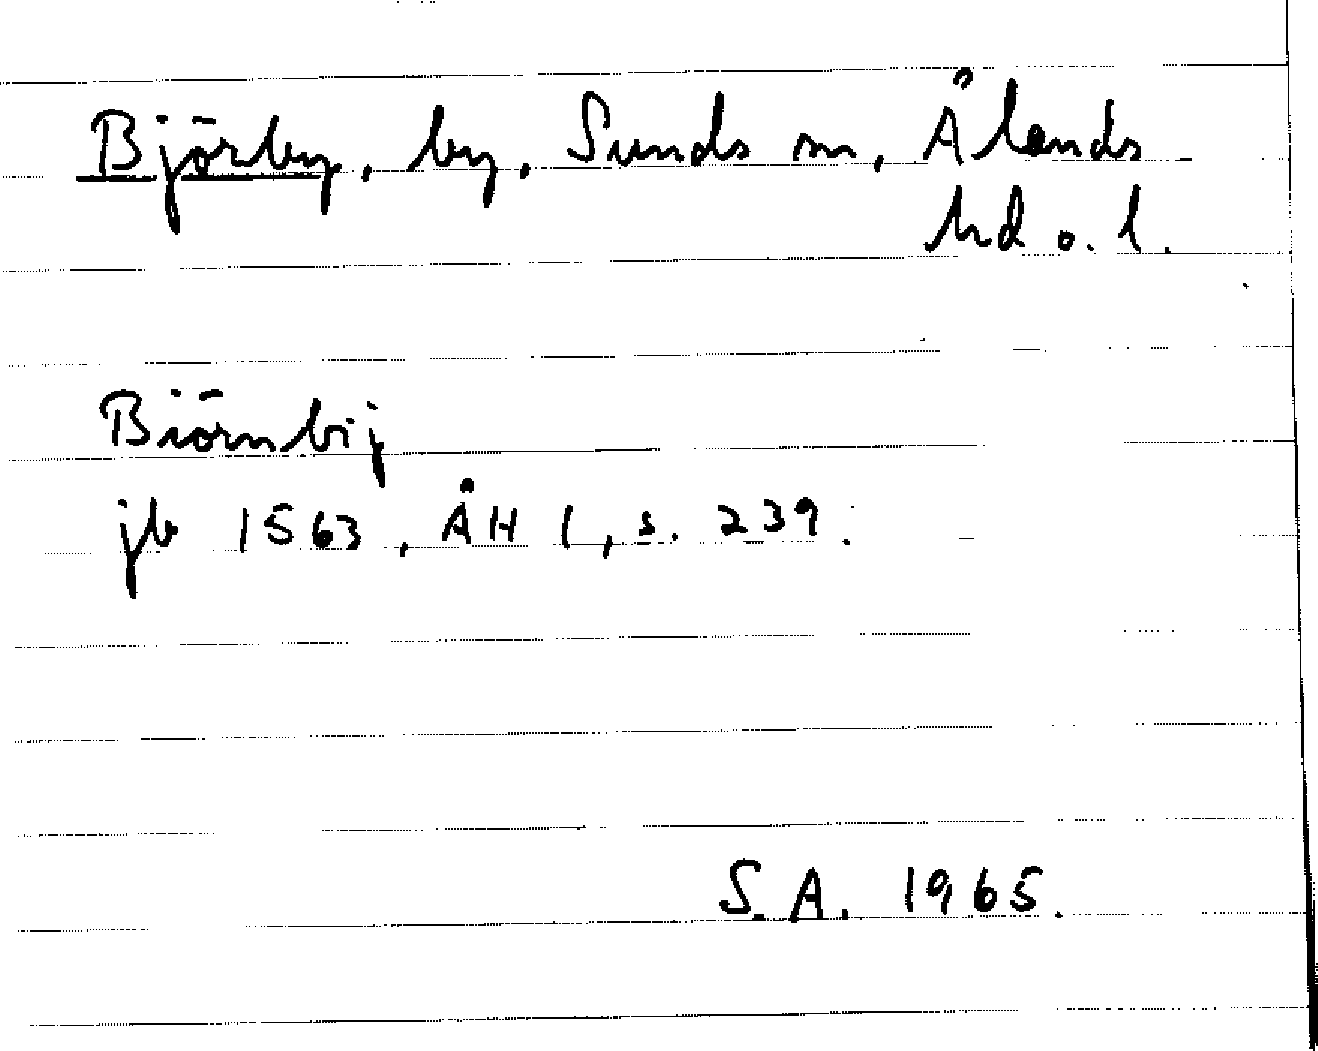 Björby, by, Sunds sn, Ålands
hd o. l.
Biörnbij
jb 1563, ÅH 1, s. 239.
S. A. 1965.